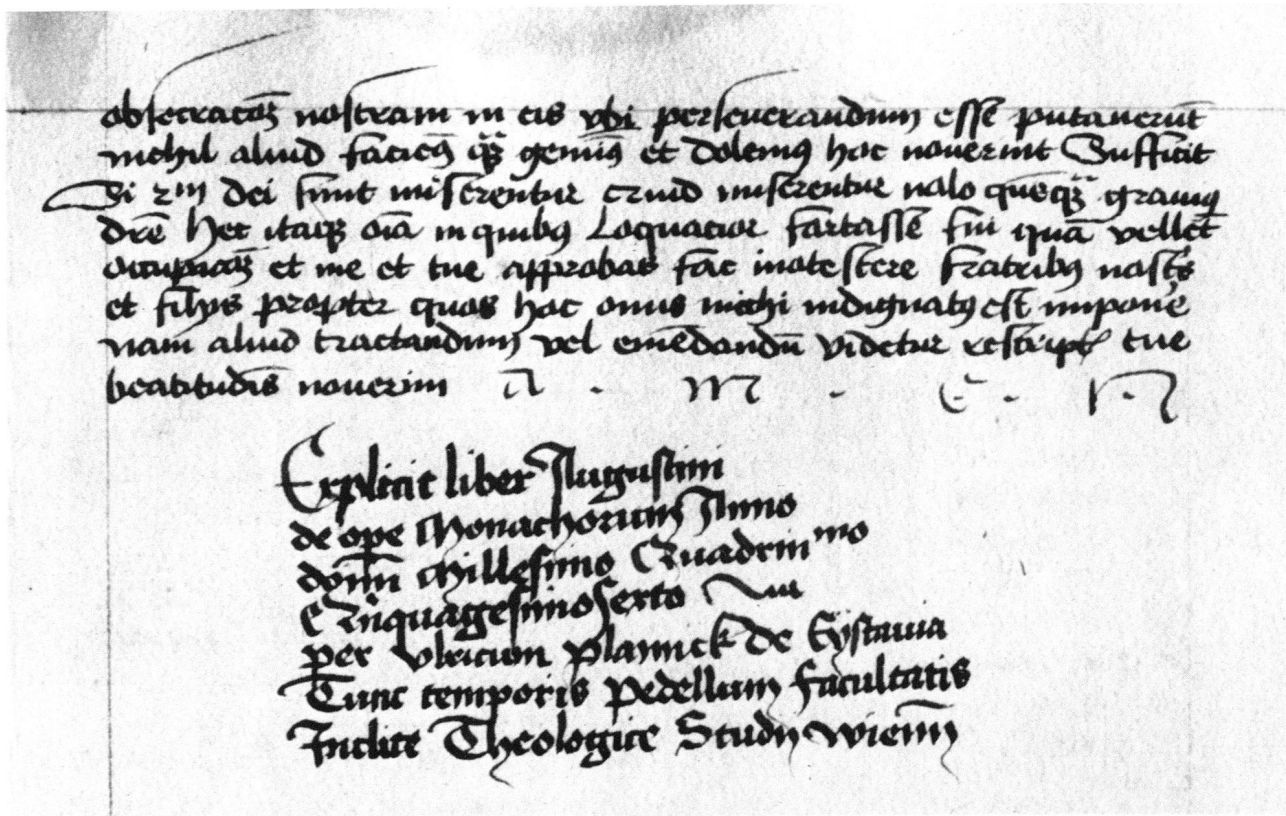 obsecracōȝ nostram in eis vbi perseuerandum esse putauerūt
nichil aliud faciem9 qȝ gemim9 et dolem9 hoc nouerint Sufficit
Si dei sunt miserentur miserentur nolo graui9
Hec itaqȝ oīa in quibus loquatior fortasse fui quā vellēt
et me et tue approbas fac inotescere fratribus nostis
et filijs propter quos hoc onus michi indignatus est imponē
nam aliud tractandum vel emēdandū videtur rescript tue
beatitudis nouerim A . M . E . N
Explicit liber Augustini
de ope Monachorum Anno
dom̄ Millesimo Quadrinmo
Quīquagesimosexto
per Vlricum Plannck de Eystauia
Tunc temporis Pedellum facultatis
Inclite Theologice Studij wienn̄